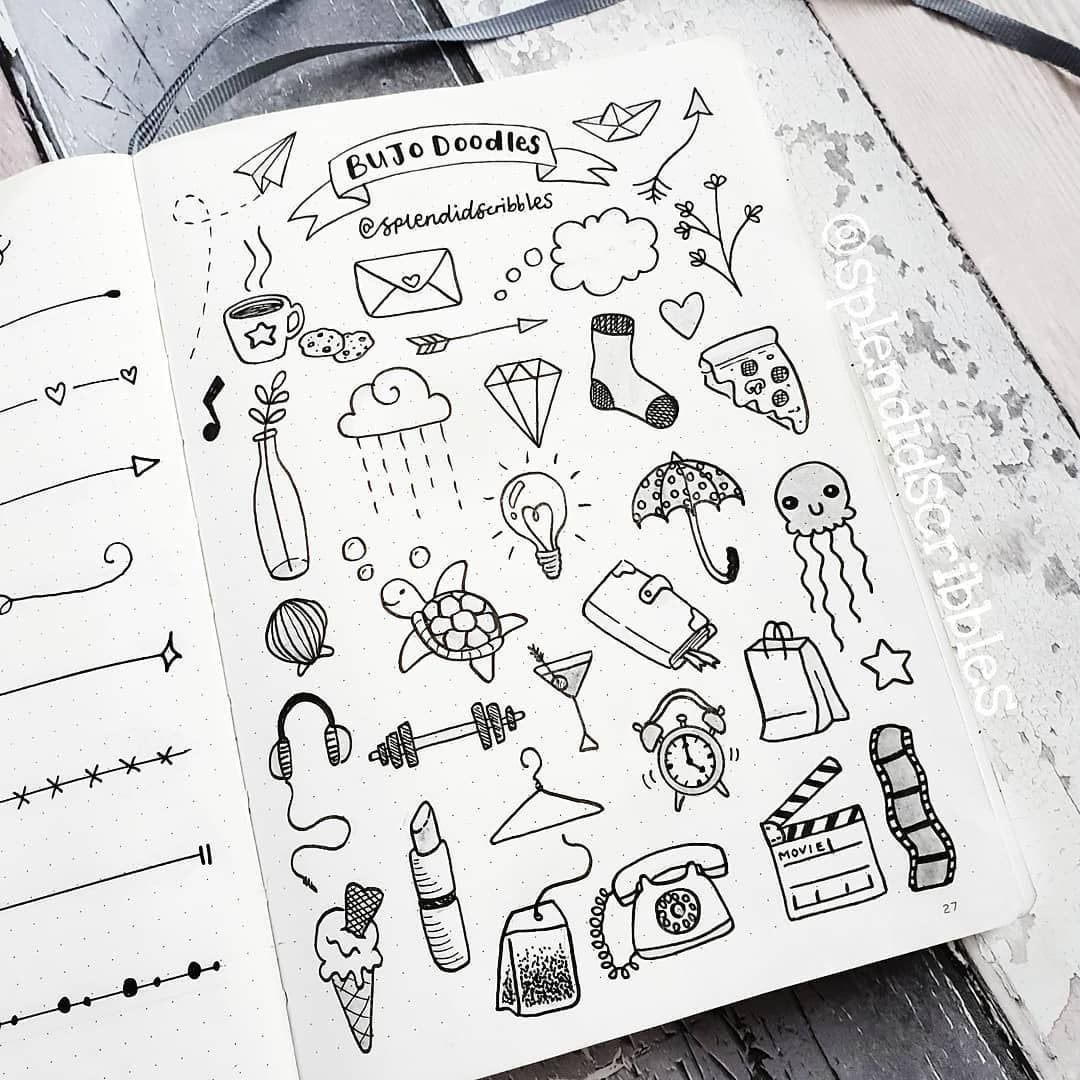 BUJO DOODLES
@splendidscribbles
MOVIE
27
@SplendidScribbles